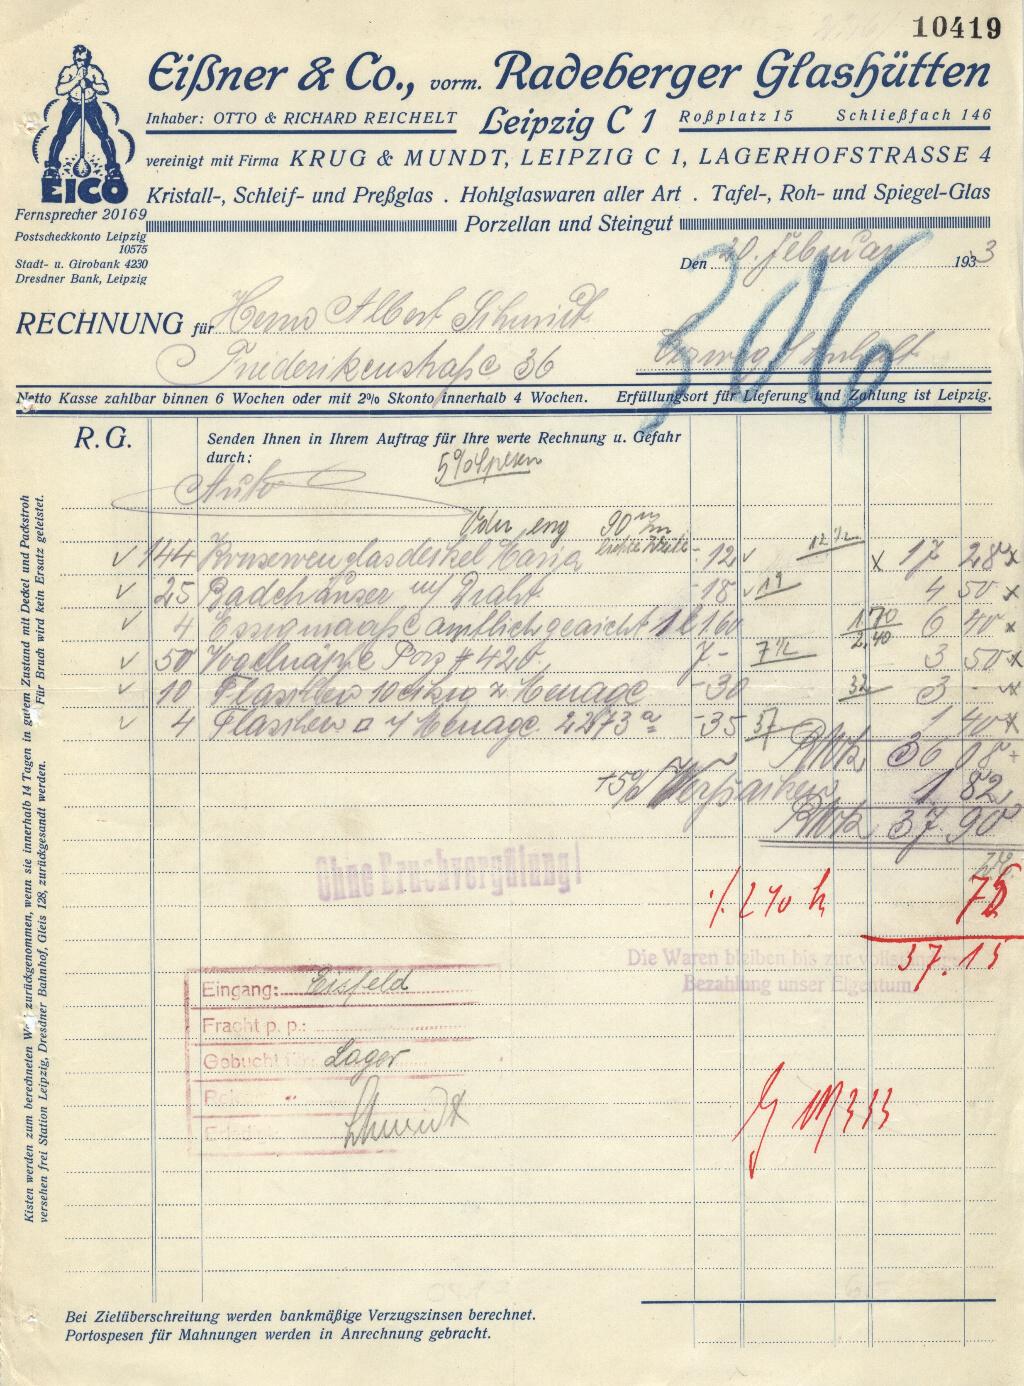 10419
Eißner & Co., vorm. Radeberger Glashütten
Inhaber: OTTO & RICHARD REICHELT Leipzig C 1 Roßplatz 15 Schließfach 146
vereinigt mit Firma KRUG & MUNDT, LEIPZIG C 1, LAGERHOFSTRASSE 4
EICO
Kristall-, Schleif- und Preßglas . Hohlglaswaren aller Art . Tafel-, Roh- und Spiegel-Glas
Porzellan und Steingut
Fernsprecher 20169
Postscheckkonto Leipzig
10575
Stadt- u. Girobank 4230
Dresdner Bank, Leipzig
Den 20. Februar 1933
306
RECHNUNG für Herrn Albert Schmidt
Friederikenstraße 36
Netto Kasse zahlbar binnen 6 Wochen oder mit 2% Skonto innerhalb 4 Wochen. Erfüllungsort für Lieferung und Zahlung ist Leipzig.
R.G.
Senden Ihnen in Ihrem Auftrag für Ihre werte Rechnung u. Gefahr
durch:
5% Spesen
Auto
eng 90 m/m
144 Konservenglasdeckel -12 12 1/2 17 28
25 Badehäuser m/ Draht -18 19 4 50
4 Essigmaaße amtlich geaicht 1 l 160 1.70 6 40
2.40
50 Vogelnäpfe Porz # 420 7- 7 1/2 3 50
10 10 eckig z Menage -30 32 3 -
4 Menage 2273 a -35 37 1 40
RMk 36 08
+5% 1 82
RMk 37 90
Ohne Bruchvergütung!
./. 2% 75
37.15
Die Waren bleiben bis zur vollständigen
Bezahlung unser Eigentum
Eingang: Eisfeld
Fracht p. p.:
Gebucht Lager
Schmidt
Kisten werden zum berechneten Wert zurückgenommen, wenn sie innerhalb 14 Tagen in gutem Zustand mit Deckel und Packstroh
versehen frei Station Leipzig, Dresdner Bahnhof, Gleis 128, zurückgesandt werden. Für Bruch wird kein Ersatz geleistet.
Bei Zielüberschreitung werden bankmäßige Verzugszinsen berechnet.
Portospesen für Mahnungen werden in Anrechnung gebracht.